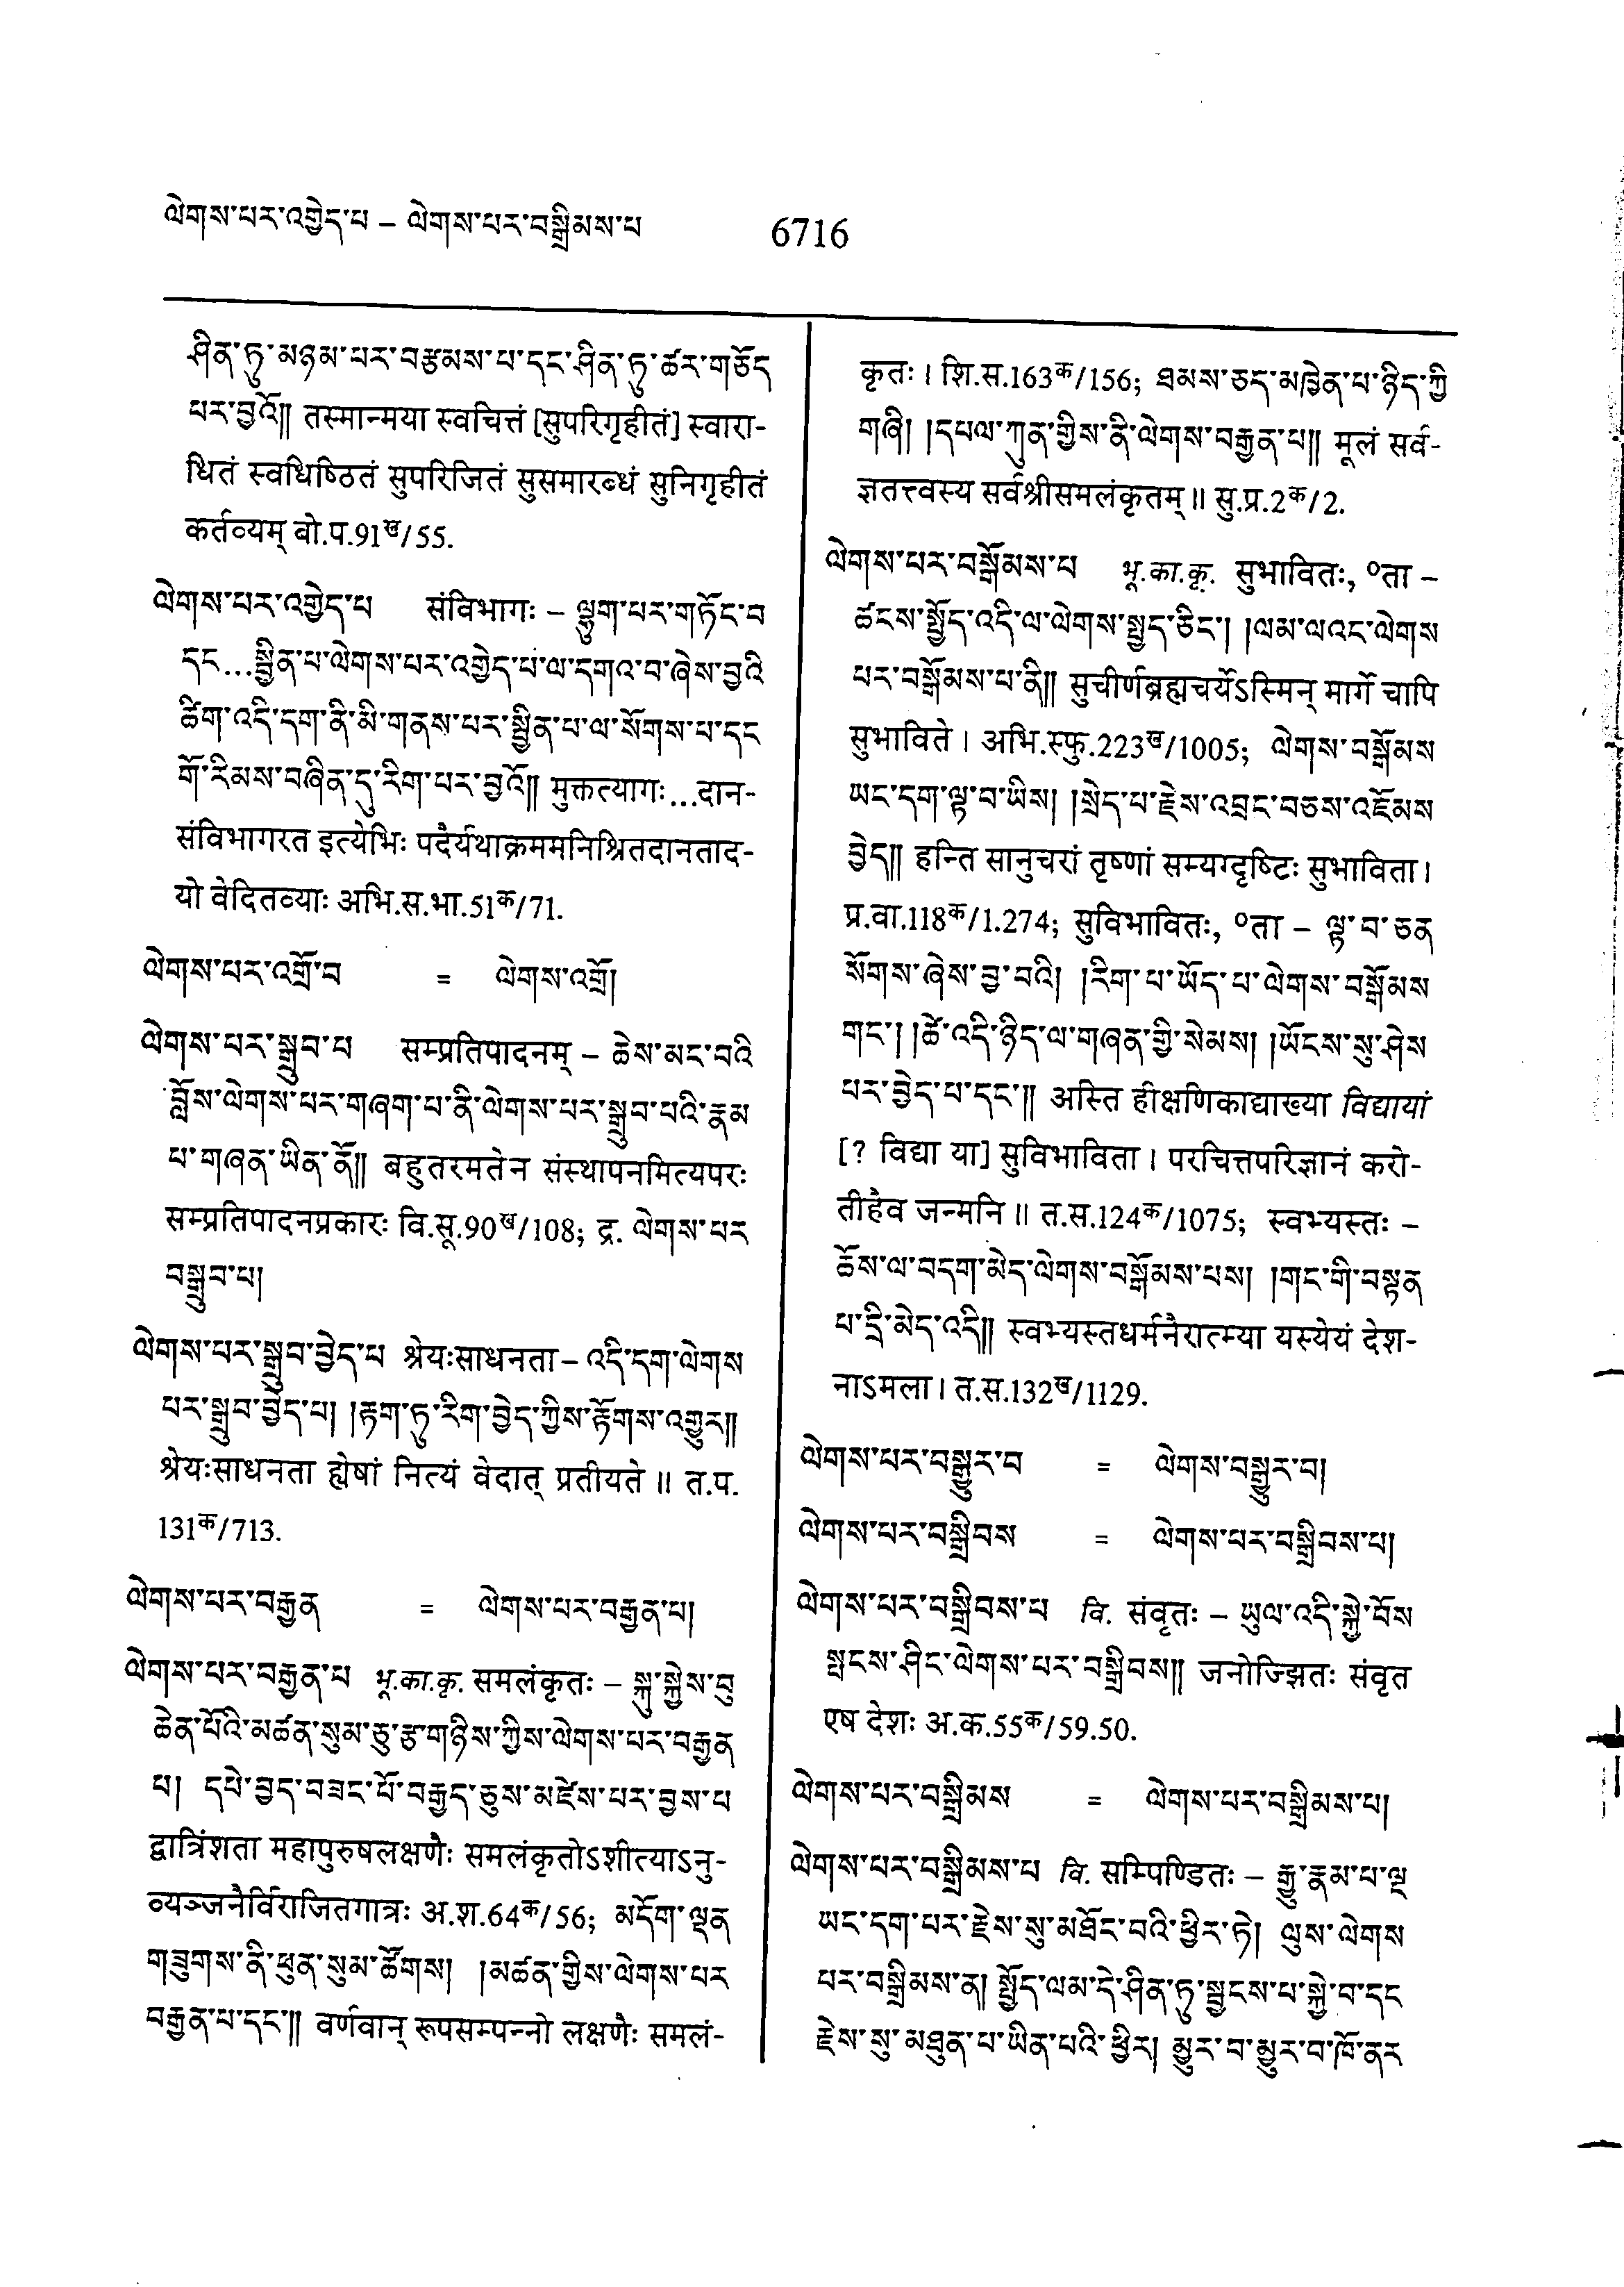 ལེགས་པར་འགྱེད་པ – ལེགས་པར་བསྒྲིམས་པ 6716
ཤིན་ཏུ་མཉམ་པར་བརྩམས་པ་དང་ཤིན་ཏུ་ཚར་གཅོད
པར་བྱའོ།། तस्मान्मया स्वचित्तं [सुपरिगृहीतं] स्वारा-
धितं स्वधिष्ठितं सुपरिजितं सुसमारब्धं सुनिगृहीतं
कर्तव्यम् बो.प.91ख/55.
ལེགས་པར་འགྱེད་པ संविभागः – ལྷུག་པར་གཏོང་བ
དང...སྦྱིན་པ་ལེགས་པར་འགྱེད་པ་ལ་དགའ་བ་ཞེས་བྱའི
ཚིག་འདི་དག་ནི་མི་གནས་པར་སྦྱིན་པ་ལ་སོགས་པ་དང
གོ་རིམས་བཞིན་དུ་རིག་པར་བྱའོ།། मुक्तत्यागः...दान-
संविभागरत इत्येभिः पदैर्यथाक्रममनिश्रितदानताद-
यो वेदितव्याः अभि.स.भा.51क/71.
ལེགས་པར་འགྲོ་བ = ལེགས་འགྲོ།
ལེགས་པར་སྒྲུབ་པ सम्प्रतिपादनम् – ཆེས་མང་བའི
བློས་ལེགས་པར་གཞག་པ་ནི་ལེགས་པར་སྒྲུབ་པའི་རྣམ
པ་གཞན་ཡིན་ནོ།། बहुतरमतेन संस्थापनमित्यपरः
सम्प्रतिपादनप्रकारः वि.सू.90ख/108; द्र. ལེགས་པར
བསྒྲུབ་པ།
ལེགས་པར་སྒྲུབ་བྱེད་པ श्रेयःसाधनता – འདི་དག་ལེགས
པར་སྒྲུབ་བྱེད་པ། །རྟག་ཏུ་རིག་བྱེད་ཀྱིས་རྟོགས་འགྱུར།།
श्रेयःसाधनता ह्येषां नित्यं वेदात् प्रतीयते ॥ त.प.
131क/713.
ལེགས་པར་བརྒྱན = ལེགས་པར་བརྒྱན་པ།
ལེགས་པར་བརྒྱན་པ भू.का.कृ. समलंकृतः – སྐུ་སྐྱེས་བུ
ཆེན་པོའི་མཚན་སུམ་ཅུ་རྩ་གཉིས་ཀྱིས་ལེགས་པར་བརྒྱན
པ། དཔེ་བྱད་བཟང་པོ་བརྒྱད་ཅུས་མཛེས་པར་བྱས་པ
द्वात्रिंशता महापुरुषलक्षणैः समलंकृतोऽशीत्याऽनु-
व्यञ्जनैर्विराजितगात्रः अ.श.64क/56; མདོག་ལྡན
གཟུགས་ནི་ཕུན་སུམ་ཚོགས། །མཚན་གྱིས་ལེགས་པར
བརྒྱན་པ་དང་།། वर्णवान् रूपसम्पन्नो लक्षणैः समलं-
कृतः । शि.स.163क/156; ཐམས་ཅད་མཁྱེན་པ་ཉིད་ཀྱི
གཞི། །དཔལ་ཀུན་གྱིས་ནི་ལེགས་བརྒྱན་པ།། मूलं सर्व-
ज्ञतत्त्वस्य सर्वश्रीसमलंकृतम् ॥ सु.प्र.2क/2.
ལེགས་པར་བསྒོམས་པ भू.का.कृ. सुभावितः, ०ता –
ཚངས་སྤྱོད་འདི་ལ་ལེགས་སྤྱད་ཅིང་། །ལམ་ལའང་ལེགས
པར་བསྒོམས་པ་ནི།། सुचीर्णब्रह्मचर्येऽस्मिन् मार्गे चापि
सुभाविते । अभि.स्फु.223ख/1005; ལེགས་བསྒོམས
ཡང་དག་ལྟ་བ་ཡིས། །སྲེད་པ་རྗེས་འབྲང་བཅས་འཇོམས
བྱེད།། हन्ति सानुचरां तृष्णां सम्यग्दृष्टिः सुभाविता ।
प्र.वा.118क/1.274; सुविभावितः, ०ता – ལྟ་བ་ཅན
སོགས་ཞེས་བྱ་བའི། །རིག་པ་ཡོད་པ་ལེགས་བསྒོམས
གང་། །ཚེ་འདི་ཉིད་ལ་གཞན་གྱི་སེམས། །ཡོངས་སུ་ཤེས
པར་བྱེད་པ་དང་།། अस्ति हीक्षणिकाद्याख्या विद्यायां
[? विद्या या] सुविभाविता । परचित्तपरिज्ञानं करो-
तीहैव जन्मनि ॥ त.स.124क/1075; स्वभ्यस्तः –
ཆོས་ལ་བདག་མེད་ལེགས་བསྒོམས་པས། །གང་གི་བསྟན
པ་དྲི་མེད་འདི།། स्वभ्यस्तधर्मनैरात्म्या यस्येयं देश-
नाऽमला । त.स.132ख/1129.
ལེགས་པར་བསྒྱུར་བ = ལེགས་བསྒྱུར་བ།
ལེགས་པར་བསྒྲིབས = ལེགས་པར་བསྒྲིབས་པ།
ལེགས་པར་བསྒྲིབས་པ वि. संवृतः – ཡུལ་འདི་སྐྱེ་བོས
སྤངས་ཤིང་ལེགས་པར་བསྒྲིབས།། जनोज्झितः संवृत
एष देशः अ.क.55क/59.50.
ལེགས་པར་བསྒྲིམས = ལེགས་པར་བསྒྲིམས་པ།
ལེགས་པར་བསྒྲིམས་པ वि. सम्पिण्डितः – རྒྱུ་རྣམ་པ་ལྔ
ཡང་དག་པར་རྗེས་སུ་མཐོང་བའི་ཕྱིར་ཏེ། ལུས་ལེགས
པར་བསྒྲིམས་ན། སྤྱོད་ལམ་དེ་ཤིན་ཏུ་སྦྱངས་པ་སྐྱེ་བ་དང
རྗེས་སུ་མཐུན་པ་ཡིན་པའི་ཕྱིར། མྱུར་བ་མྱུར་བ་ཁོ་ནར